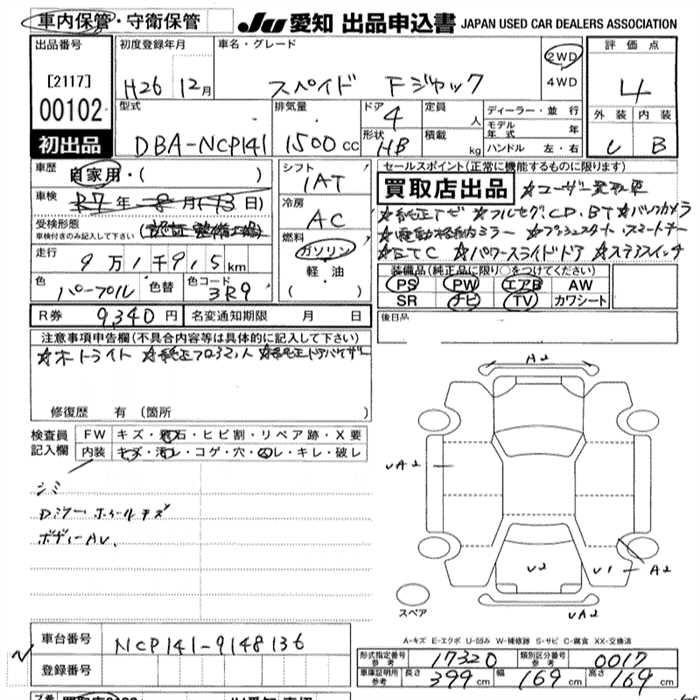 車内保管・守衛保管 JU 愛知 出品申込書 JAPAN USED CAR DEALERS ASSOCIATION
出品番号 初度登録年月 車名・グレード 評価点
[2117] H26 12月 スペイド Fジャック 2WD 4WD 4
00102 型式 排気量 ドア 4 定員 人 ディーラー・並行 外装 内装
初出品 DBA-NCP141 1500cc 形状 HB 積載 kg モデル年式 年 B
ハンドル 左・右
車歴 自家用・( ) シフト 1AT セールスポイント(正常に機能するものに限ります)
車検 R7年 8月 13日) 買取店出品 ☆ユーザー買取車
受検形態 冷房 AC ☆純正ナビ ☆フルセグ,CD,BT ☆バックカメラ
車検付きのみ記入して下さい ☆電動格納ミラー ☆プッシュスタート・スマートキー
走行 9万1千915km 燃料 ガソリン ☆ETC ☆パワースライドドア ☆ステアスイッチ
色 パープル 色替 色コード 3R9 軽油 ( ) 装備品(純正品に限り○をつけてください)
PS PW エアB AW
SR ナビ TV カワシート
R券 9,340円 名変通知期限 月 日 後日品
注意事項申告欄(不具合内容等は具体的に記入して下さい)
A2
修復歴 有(箇所 )
検査員 FW キズ・飛石・ヒビ割・リペア跡・X要
記入欄 内装 キズ・汚レ・コゲ・穴・スレ・キレ・破レ
UA2
シミ
ボディーAU.
U2 U1 A2
スペア UA2
A-キズ E-エクボ U-凹み W-補修跡 S-サビ C-腐食 XX-交換済
車台番号 NCP141-9148136
形式指定番号 参考 17320 類別区分番号 参考 0017
登録番号 車庫証明用 参考 長さ 399cm 幅 169cm 高さ 169cm